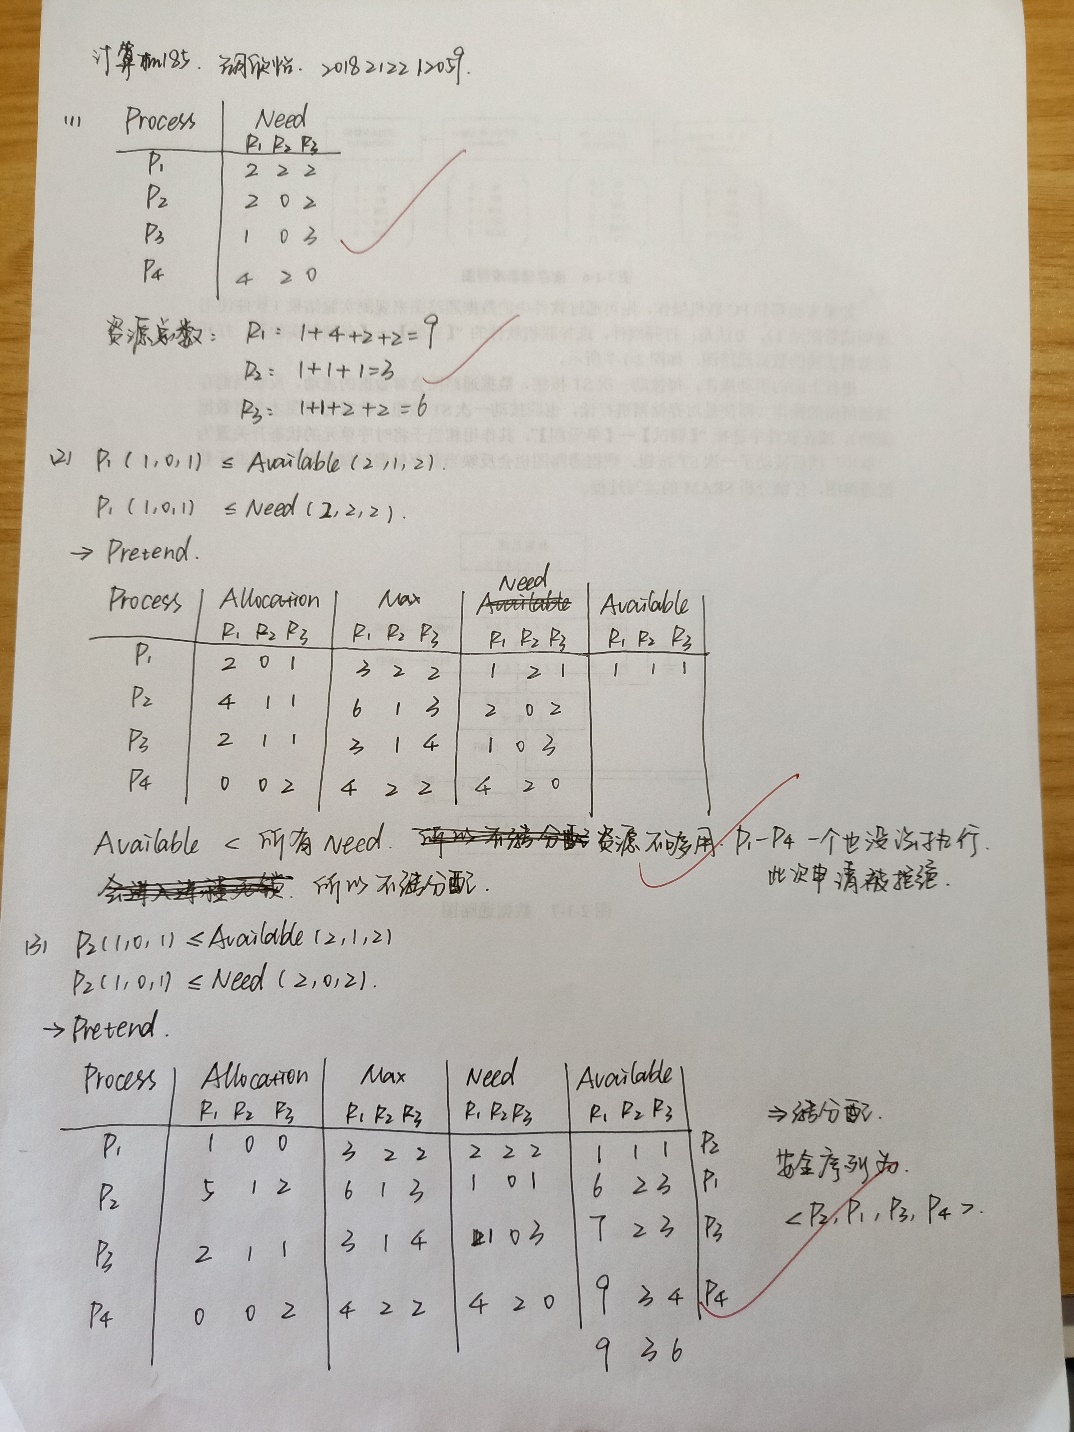 计算机185. 胡欣怡. 2018212212059.
(1) Process Need
R₁ R₂ R₃
P₁ 2 2 2
P₂ 2 0 2
P₃ 1 0 3
P₄ 4 2 0
资源总数: R₁: 1+4+2+2=9
R₂: 1+1+1=3
R₃: 1+1+2+2=6
(2) P₁(1,0,1) ≤ Available(2,1,2).
P₁(1,0,1) ≤ Need(2,2,2).
→ Pretend.
Process Allocation Max Need Available
R₁ R₂ R₃ R₁ R₂ R₃ R₁ R₂ R₃ R₁ R₂ R₃
P₁ 2 0 1 3 2 2 1 2 1 1 1 1
P₂ 4 1 1 6 1 3 2 0 2
P₃ 2 1 1 3 1 4 1 0 3
P₄ 0 0 2 4 2 2 4 2 0
Available < 所有need. 资源不够用. P₁-P₄一个也没法执行.
所以不能分配. 此次申请被拒绝.
(3) P₂(1,0,1) ≤ Available(2,1,2)
P₂(1,0,1) ≤ Need(2,0,2).
→ Pretend.
Process Allocation Max Need Available
R₁ R₂ R₃ R₁ R₂ R₃ R₁ R₂ R₃ R₁ R₂ R₃
P₁ 1 0 0 3 2 2 2 2 2 1 1 1 P₂
P₂ 5 1 2 6 1 3 1 0 1 6 2 3 P₁
P₃ 2 1 1 3 1 4 1 0 3 7 2 3 P₃
P₄ 0 0 2 4 2 2 4 2 0 9 3 4 P₄
9 3 6
⇒ 能分配.
安全序列为.
<P₂, P₁, P₃, P₄>.